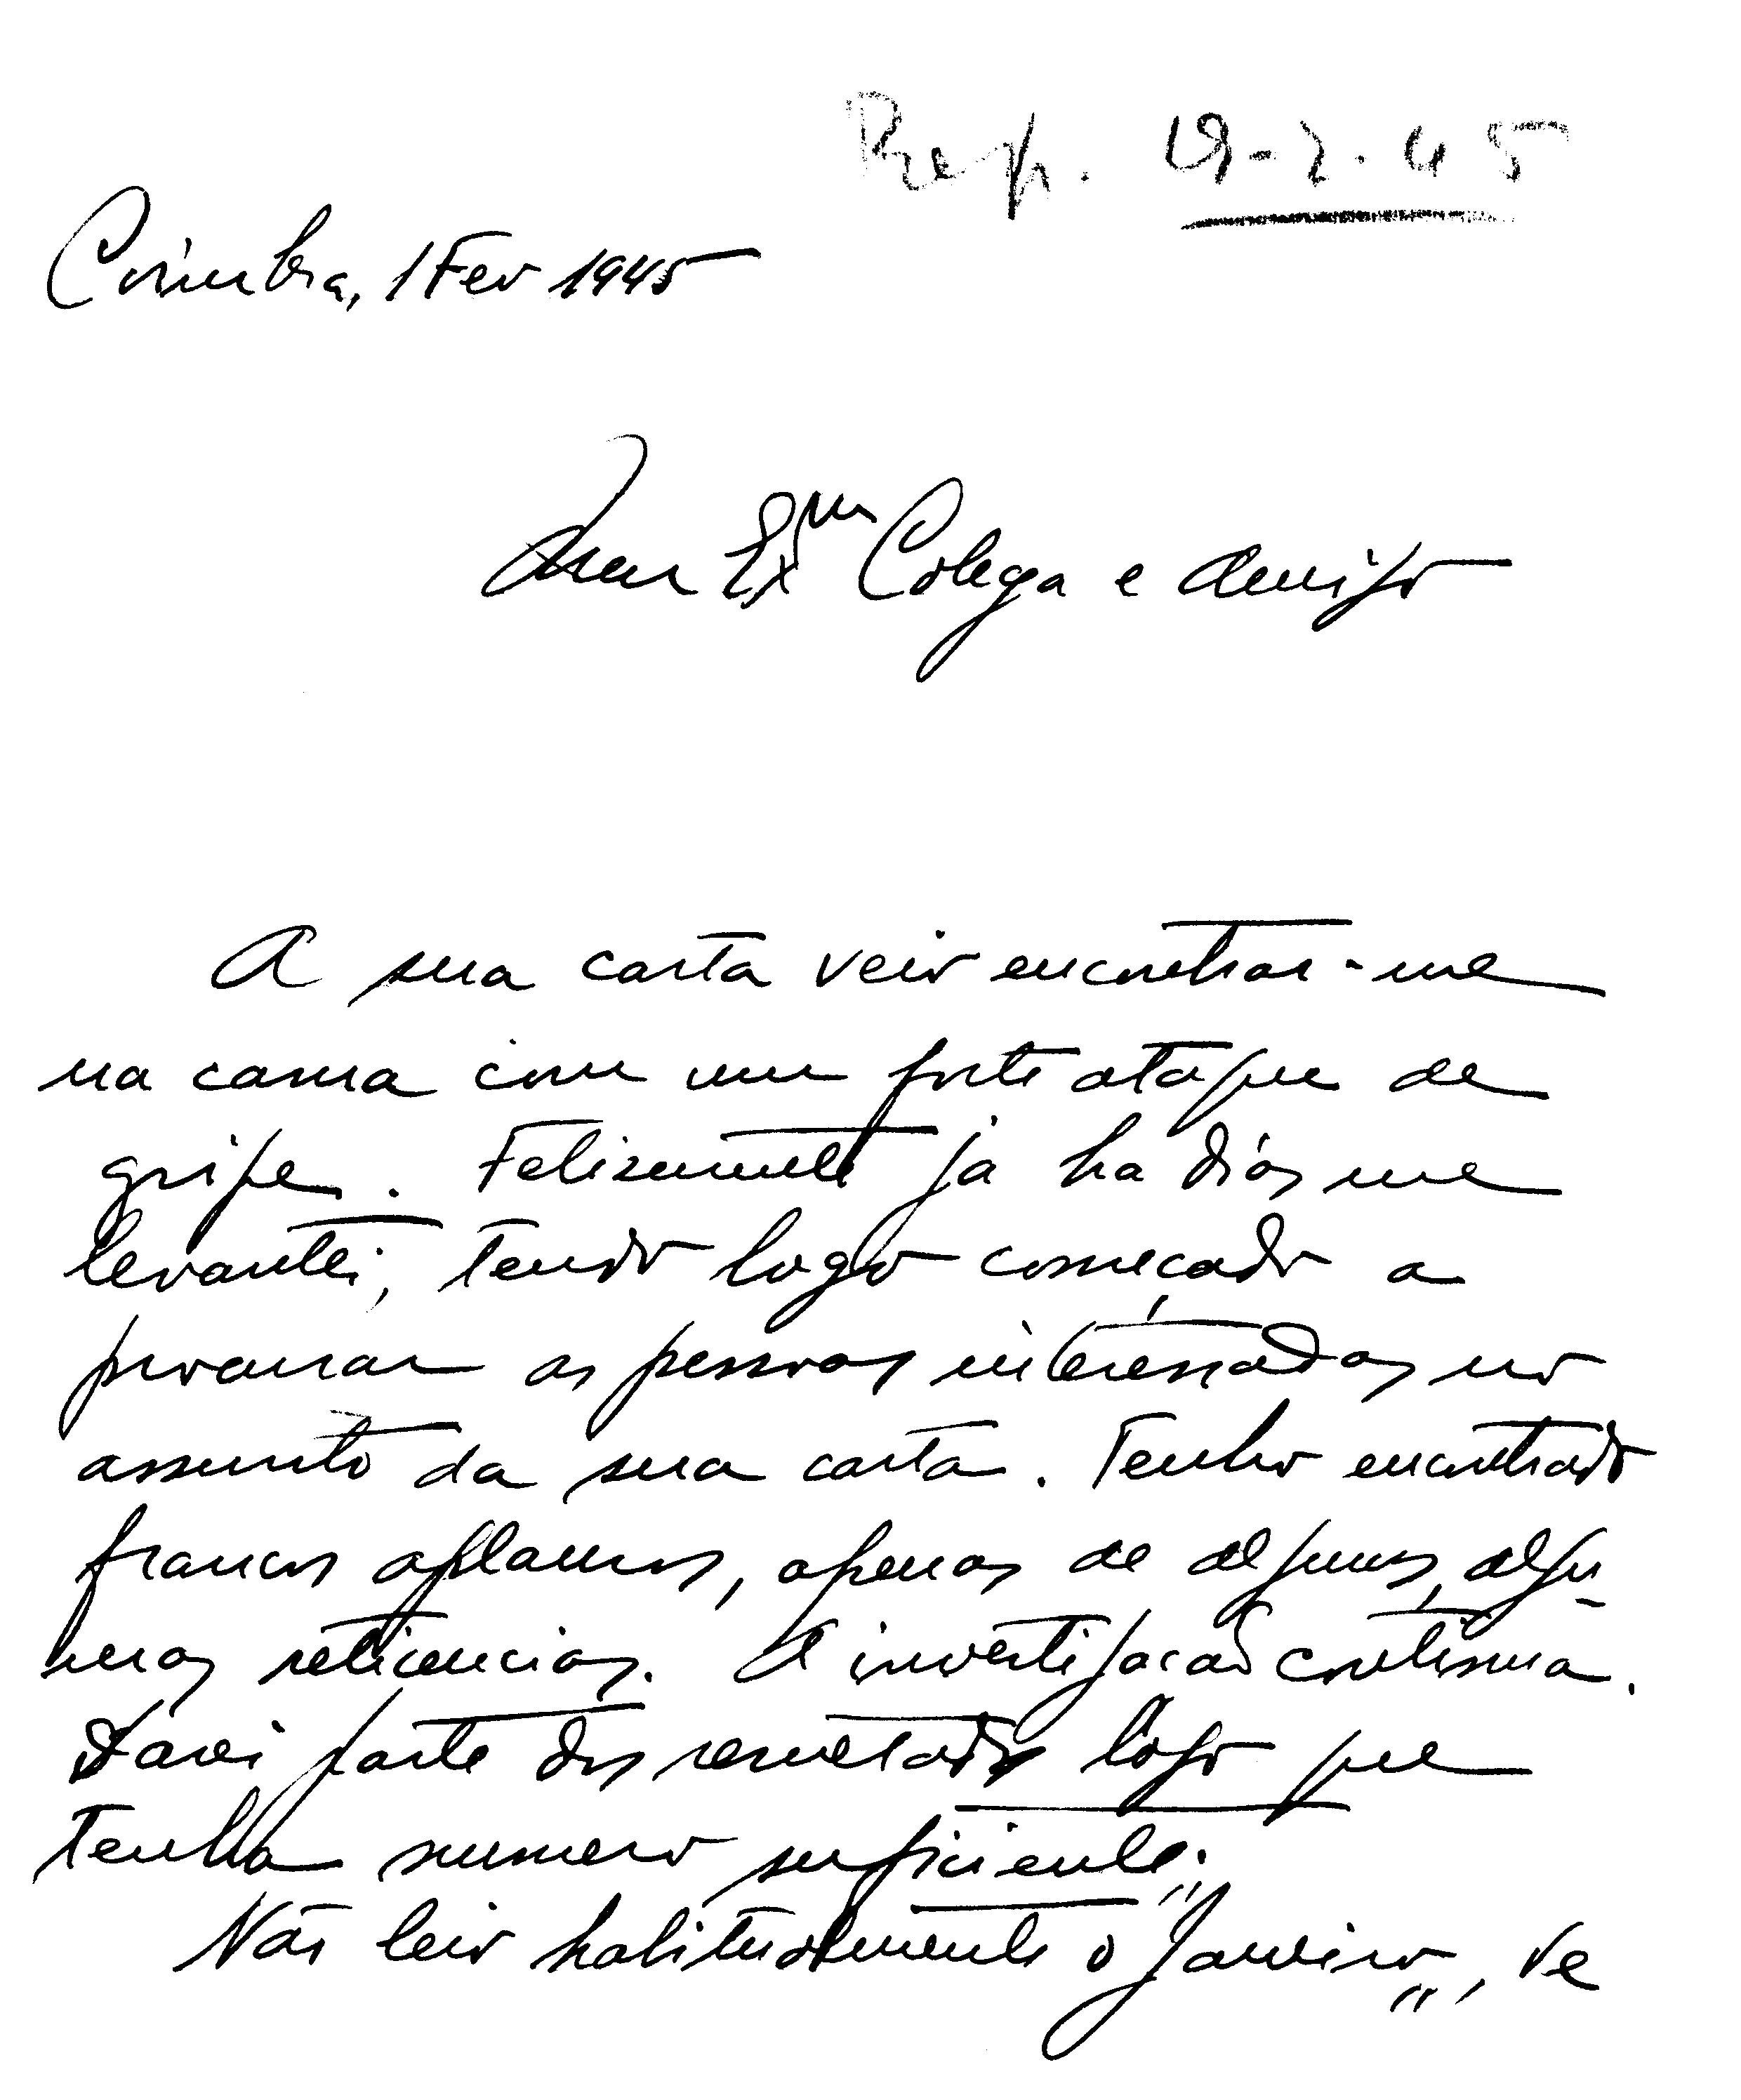 Resp. 19-2-45
Coimbra, 1 Fev 1945
Meu Exmo Colega e Amigo
A sua carta veio encontrar-me
na cama com um forte ataque de
gripe. Felizmente já ha dias me
levantei, tendo logo começado a
procurar as pessoas interessadas no
assunto da sua carta. Tenho encontrado
francos aplausos, apenas de alguns, algu-
mas reticencias. A investigação continua.
Darei parte dos resultados logo que
tenha numero suficiente.
Não leio habitualmente o "Janeiro", ve